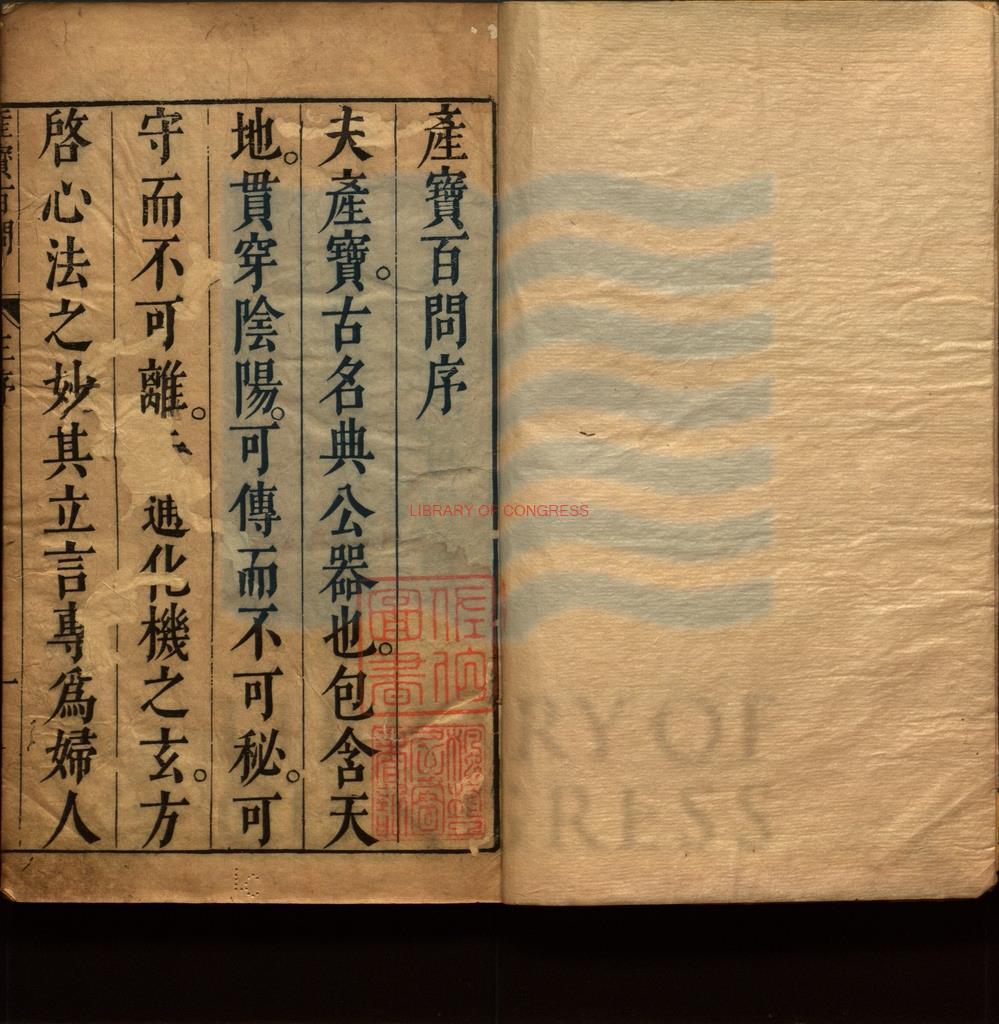 產寶百問序
夫產寶。古名典公器也。包含天
地。貫穿陰陽。可傳而不可秘。可
守而不可離。 進化機之玄。方
啓心法之妙其立言專爲婦人
產寶百問 序 一
LIBRARY OF CONGRESS
圖書
RY OF
RESS
LC